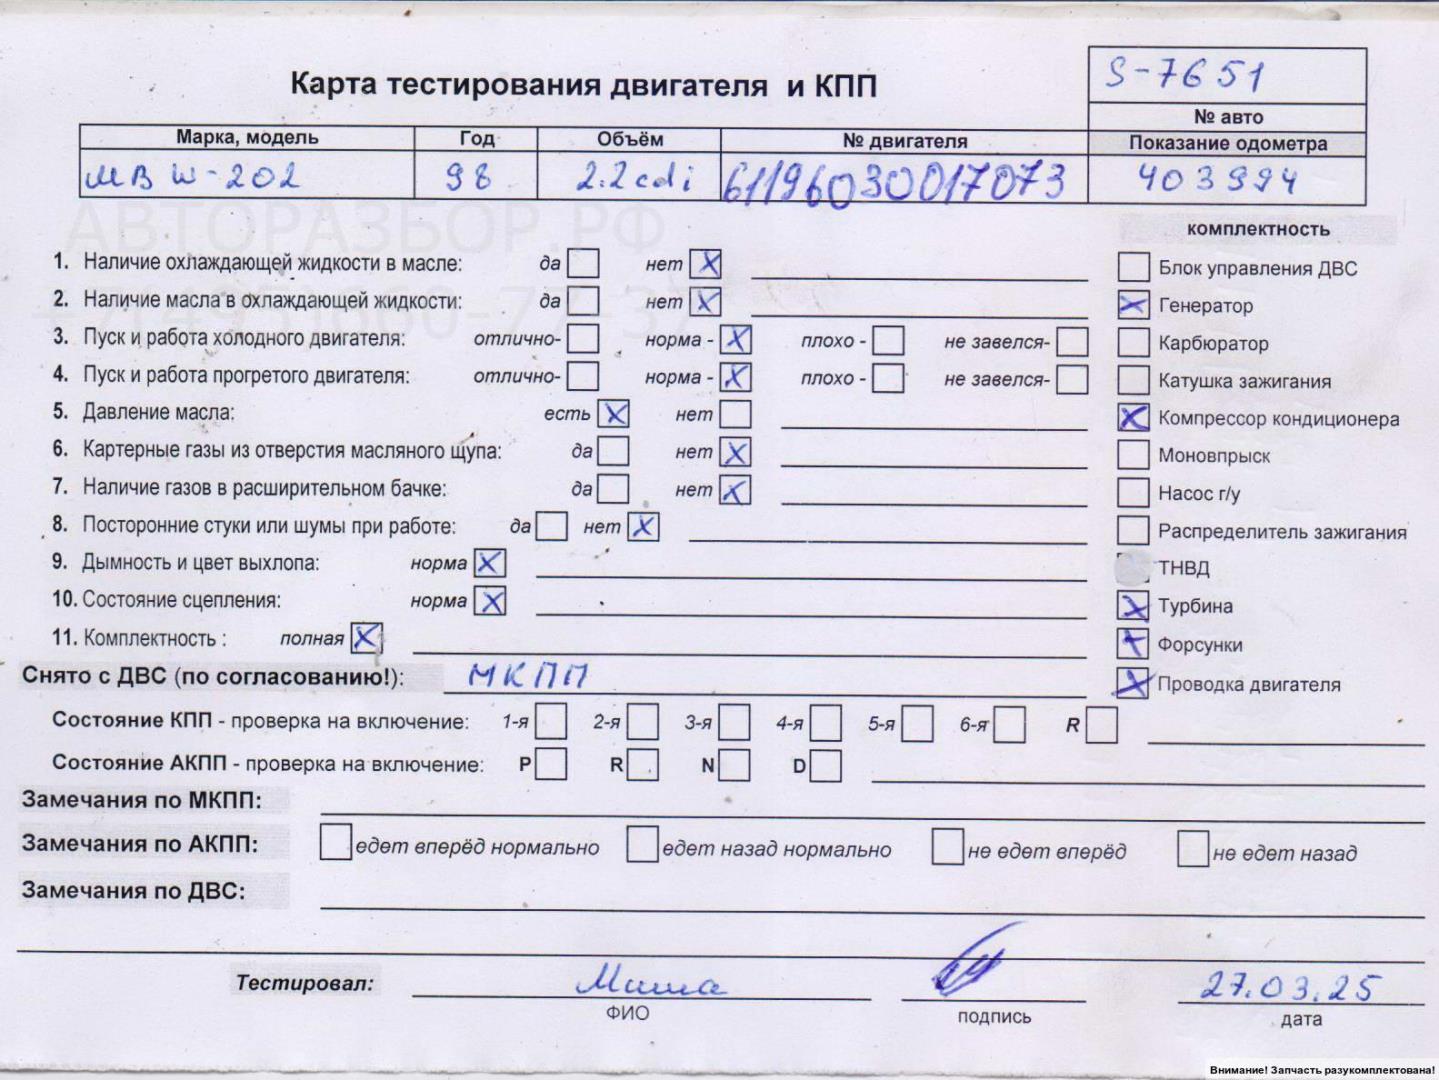 S-7651
Карта тестирования двигателя и КПП
№ авто
Марка, модель Год Объём № двигателя Показание одометра
МВ W-202 98 2.2cdi 61196030017073 403994
АВТОРАЗБОР.РФ
+7(495)660-77-37
комплектность
1. Наличие охлаждающей жидкости в масле: да нет X
Блок управления ДВС
2. Наличие масла в охлаждающей жидкости: да нет X
X Генератор
3. Пуск и работа холодного двигателя: отлично- норма - X плохо - не завелся-
Карбюратор
4. Пуск и работа прогретого двигателя: отлично- норма - X плохо - не завелся-
Катушка зажигания
5. Давление масла: есть X нет
X Компрессор кондиционера
6. Картерные газы из отверстия масляного щупа: да нет X
Моновпрыск
7. Наличие газов в расширительном бачке: да нет X
Насос г/у
8. Посторонние стуки или шумы при работе: да нет X
Распределитель зажигания
9. Дымность и цвет выхлопа: норма X
ТНВД
10. Состояние сцепления: норма X
X Турбина
11. Комплектность : полная X
X Форсунки
Снято с ДВС (по согласованию!): МКПП
X Проводка двигателя
Состояние КПП - проверка на включение: 1-я 2-я 3-я 4-я 5-я 6-я R
Состояние АКПП - проверка на включение: P R N D
Замечания по МКПП:
Замечания по АКПП: едет вперёд нормально едет назад нормально не едет вперёд не едет назад
Замечания по ДВС:
Тестировал: Миша 27.03.25
ФИО подпись дата
Внимание! Запчасть разукомплектована!